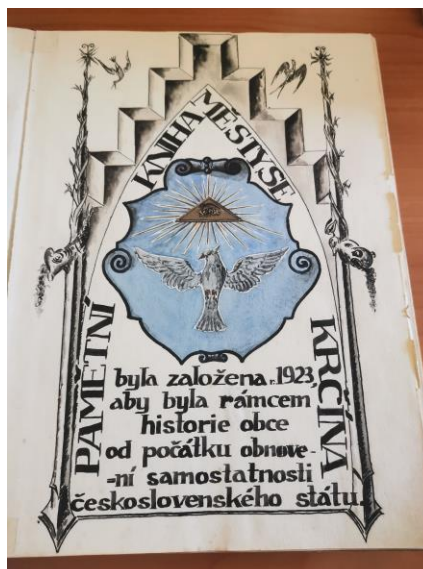 PAMĚTNÍ KNIHA MĚSTYSE KRČÍNA
byla založena r. 1923,
aby byla rámcem
historie obce
od počátku obnove-
=ní samostatnosti
československého státu.